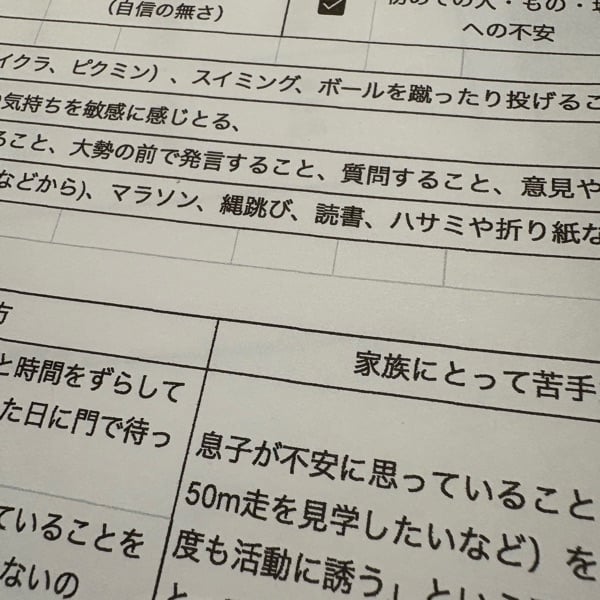 (自信の無さ)
への不安
イクラ、ピクミン）、スイミング、ボールを蹴ったり投げるこ
気持ちを敏感に感じとる、
ること、大勢の前で発言すること、質問すること、意見や
などから)、マラソン、縄跳び、読書、ハサミや折り紙な
方
と時間をずらして
た日に門で待っ
ていることを
ないの
家族にとって苦手
息子が不安に思っていること
50m走を見学したいなど）を
度も活動に誘う」という